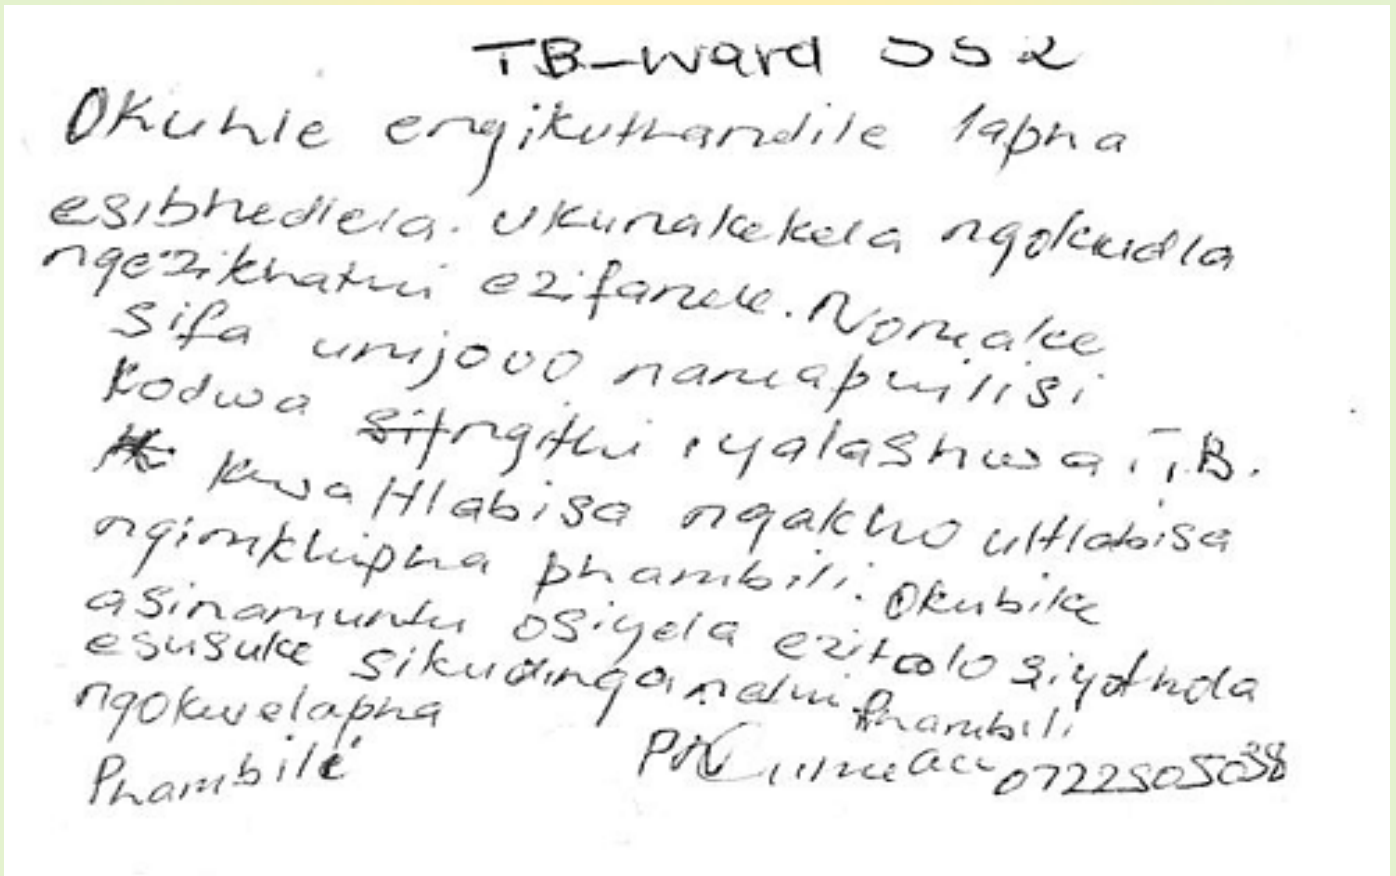 TB-ward SS2
Okuhle engikuthandile lapha
esibhedlela. Ukunakekela ngokudla
ngezikhathi ezifanele. Nomake
sifa umjovo namaphilisi
kodwa ngithi iyalashwa i T.B.
KwaHlabisa ngakho uHlabisa
ngimkhipha phambili. Okubike
asinamuntu osiyela ezitolo siyothola
esusuke sikudinga Phambili
ngokwelapha
Phambili 0722505038